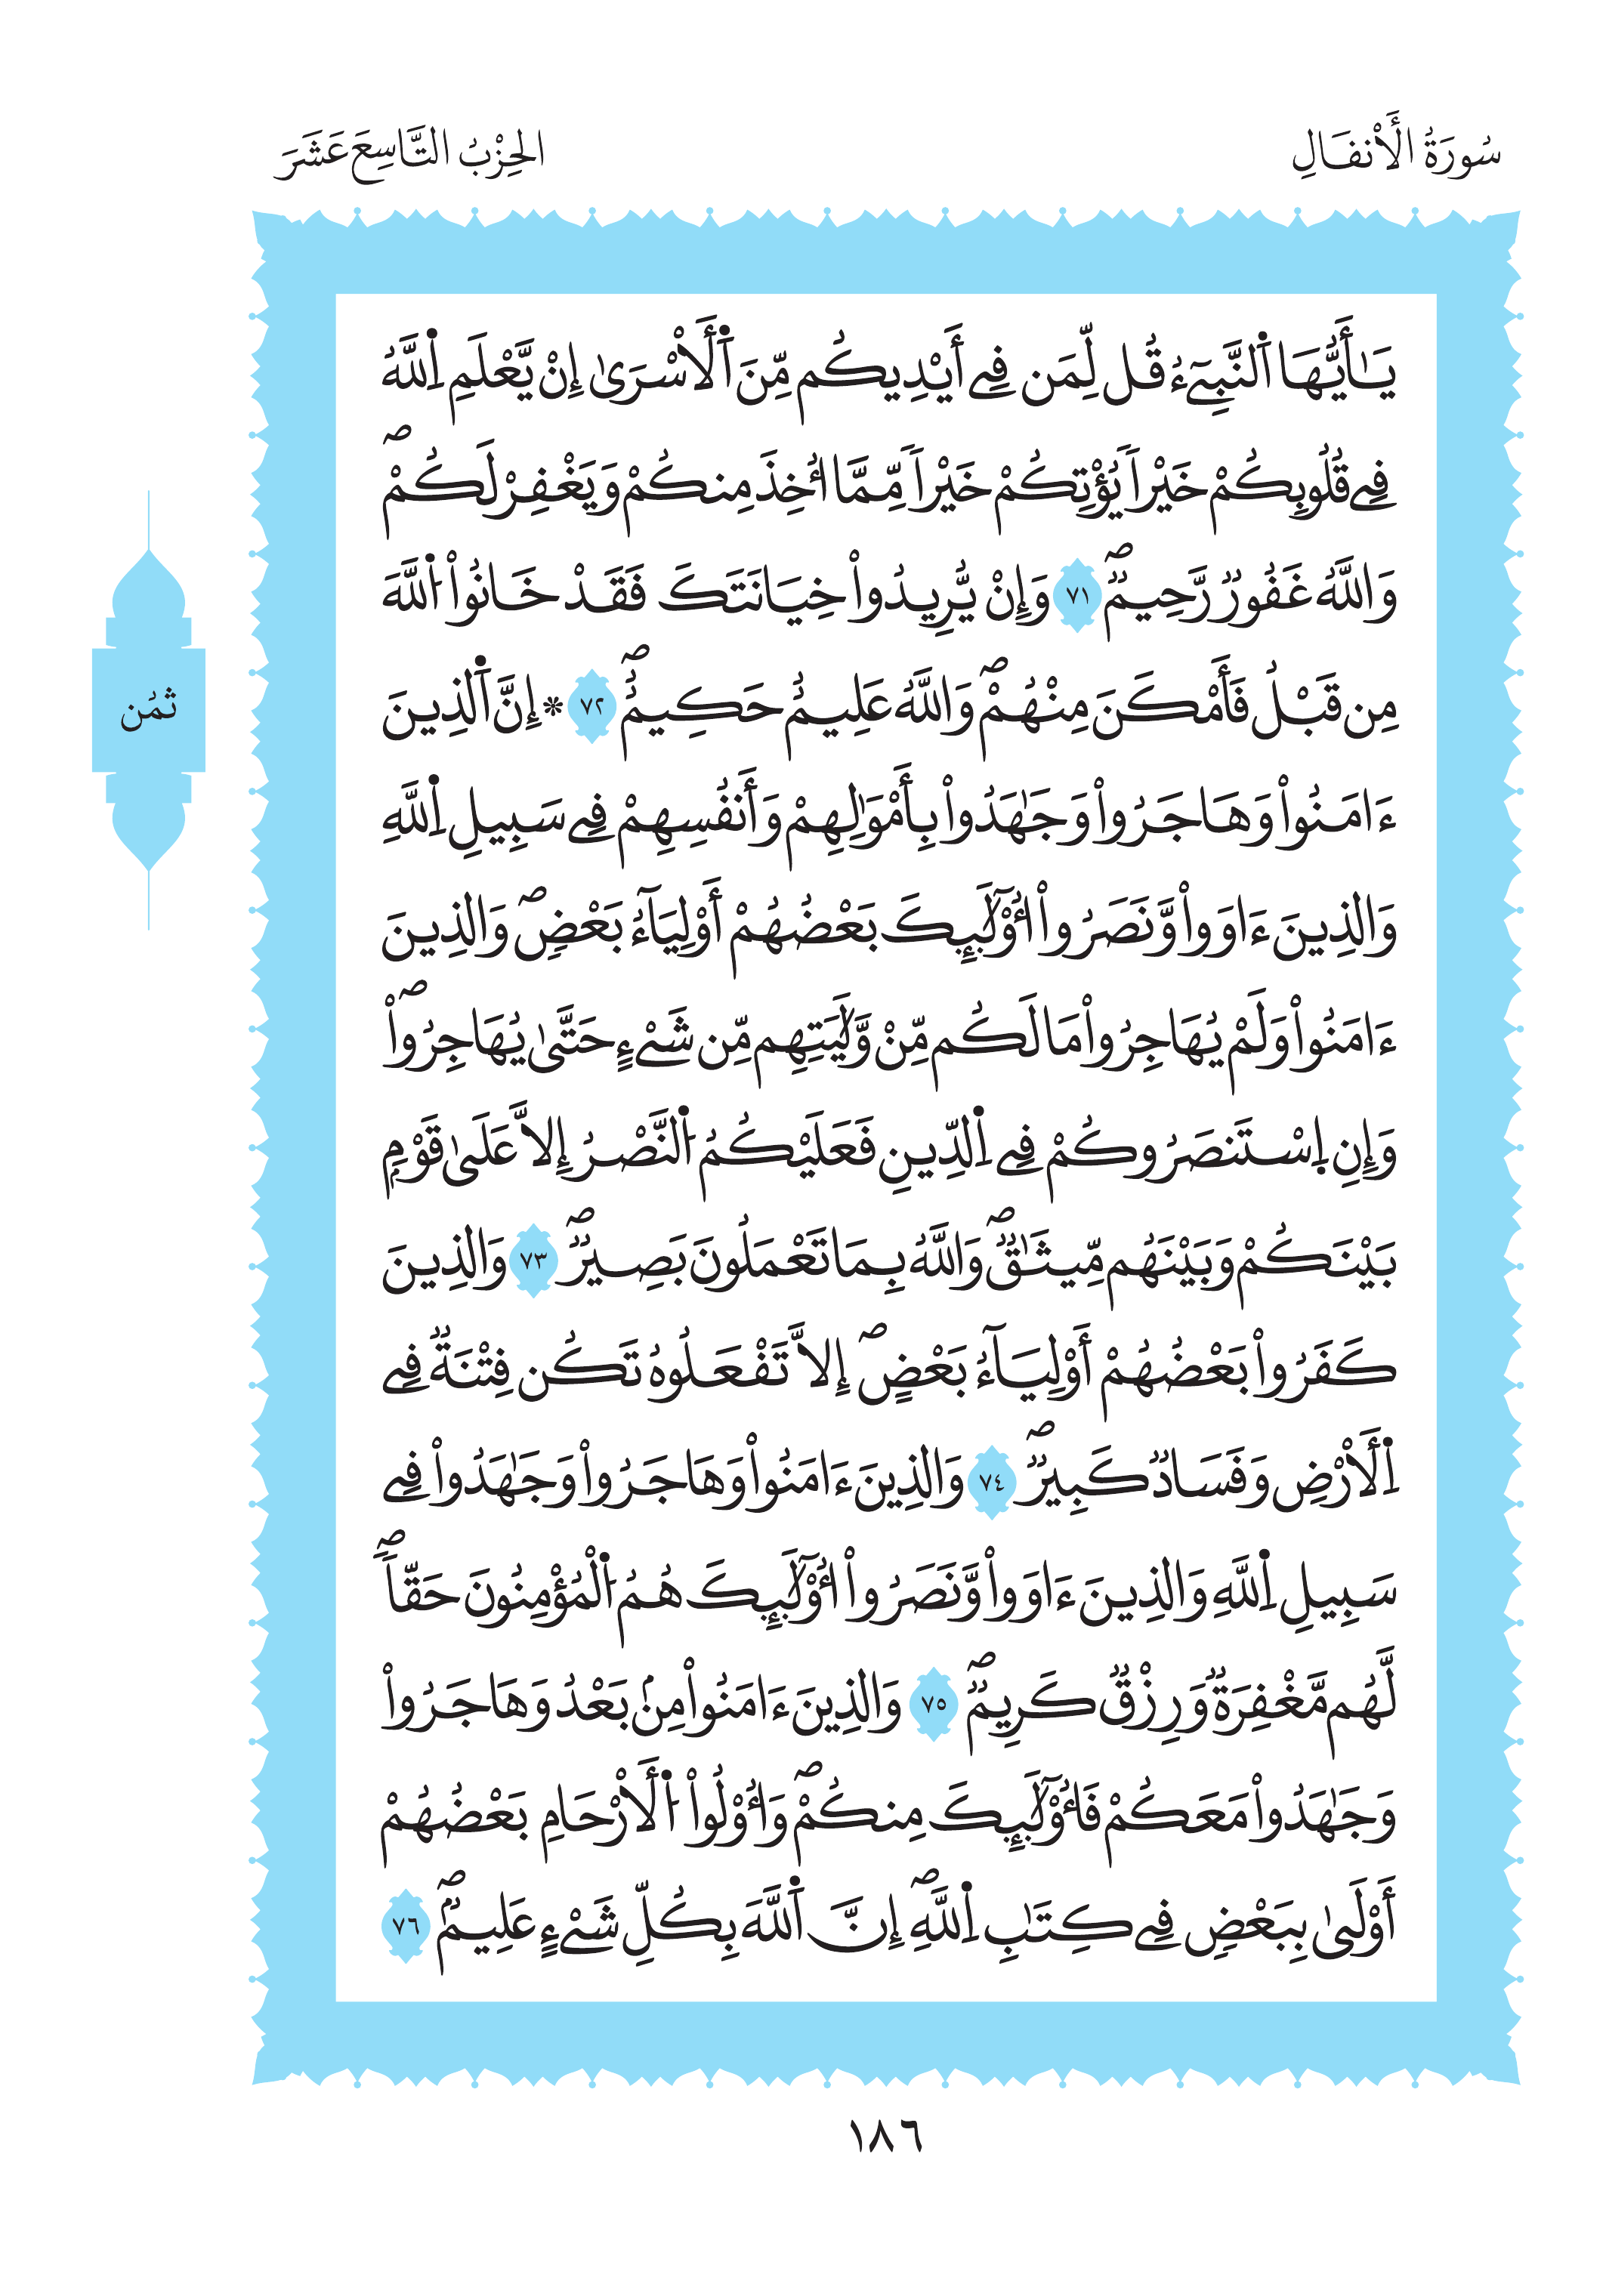 سُورَةُ الْأَنفَالِ
الحِزْبُ التَّاسِعَ عَشَرَ
يَـٰأَيُّهَا اَ۬لنَّبِيٓءُ قُل لِّمَن فِے أَيْدِيكُم مِّنَ اَ۬لَأَسْر۪يٰ إِنْ يَّعْلَمِ اِ۬للَّهُ
فِے قُلُوبِكُمْ خَيْراٗ يُؤْتِكُمْ خَيْراٗ مِّمَّا أُخِذَ مِنكُمْ وَيَغْفِرْ لَكُمْۖ
وَاللَّهُ غَفُورٞ رَّحِيمٞۖ ٧١ وَإِنْ يُّرِيدُواْ خِيَانَتَكَ فَقَدْ خَانُواْ اُ۬للَّهَ
مِن قَبْلُ فَأَمْكَنَ مِنْهُمْۖ وَاللَّهُ عَلِيمٌ حَكِيمٌۖ ٧٢ * إِنَّ اَ۬لذِينَ
ءَامَنُواْ وَهَاجَرُواْ وَجَٰهَدُواْ بِأَمْوَٰلِهِمْ وَأَنفُسِهِمْ فِے سَبِيلِ اِ۬للَّهِ
وَالذِينَ ءَاوَواْ وَّنَصَرُواْ أُوْلَٰٓئِكَ بَعْضُهُمْ أَوْلِيَآءُ بَعْضٖۖ وَالذِينَ
ءَامَنُواْ وَلَمْ يُهَاجِرُواْ مَا لَكُم مِّنْ وَّلَٰيَتِهِم مِّن شَےْءٍ حَتَّيٰ يُهَاجِرُواْۖ
وَإِنِ اِ۪سْتَنصَرُوكُمْ فِے اِ۬لدِّينِ فَعَلَيْكُمُ اُ۬لنَّصْرُ إِلَّا عَلَيٰ قَوْمِۢ
بَيْنَكُمْ وَبَيْنَهُم مِّيثَٰقٞۖ وَاللَّهُ بِمَا تَعْمَلُونَ بَصِيرٞۖ ٧٣ وَالذِينَ
كَفَرُواْ بَعْضُهُمْ أَوْلِيَآءُ بَعْضٍۖ إِلَّا تَفْعَلُوهُ تَكُن فِتْنَةٞ فِے
اِ۬لَأَرْضِ وَفَسَادٞ كَبِيرٞۖ ٧٤ وَالذِينَ ءَامَنُواْ وَهَاجَرُواْ وَجَٰهَدُواْ فِے
سَبِيلِ اِ۬للَّهِ وَالذِينَ ءَاوَواْ وَّنَصَرُواْ أُوْلَٰٓئِكَ هُمُ اُ۬لْمُؤْمِنُونَ حَقّاٗۖ
لَّهُم مَّغْفِرَةٞ وَرِزْقٞ كَرِيمٞۖ ٧٥ وَالذِينَ ءَامَنُواْ مِنۢ بَعْدُ وَهَاجَرُواْ
وَجَٰهَدُواْ مَعَكُمْ فَأُوْلَٰٓئِكَ مِنكُمْۖ وَأُوْلُواْ اُ۬لَأَرْحَامِ بَعْضُهُمْ
أَوْلَيٰ بِبَعْضٖ فِے كِتَٰبِ اِ۬للَّهِۖ إِنَّ اَ۬للَّهَ بِكُلِّ شَےْءٍ عَلِيمُۢۖ ٧٦
ثمُن
١٨٦